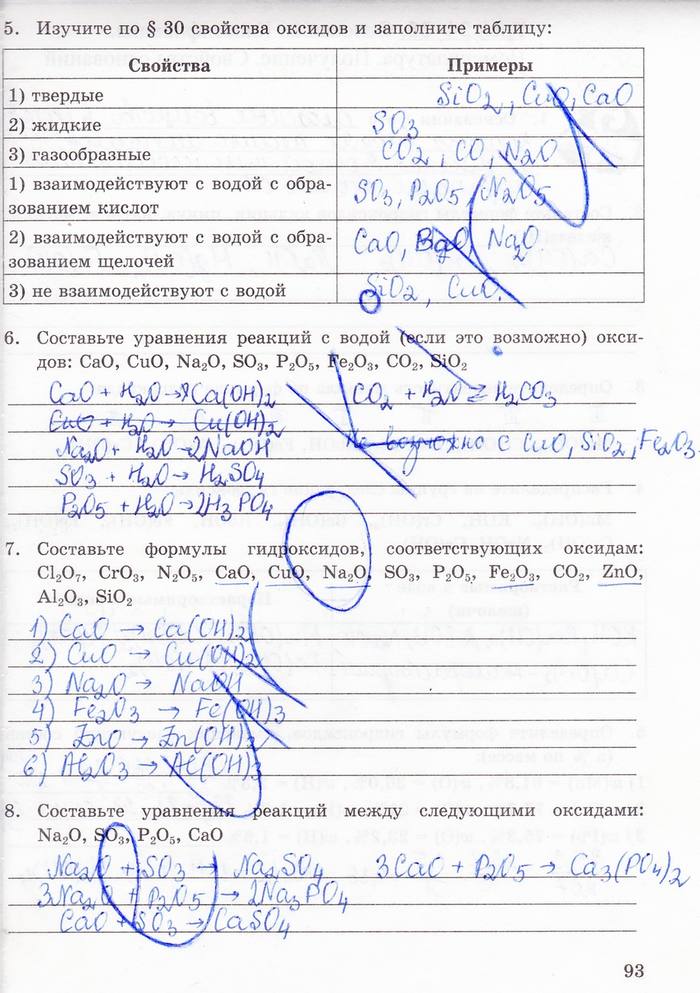 5. Изучите по § 30 свойства оксидов и заполните таблицу:
Свойства Примеры
1) твердые SiO2, CuO, CaO
2) жидкие SO3
3) газообразные CO2, CO, N2O
1) взаимодействуют с водой с обра-
зованием кислот SO3, P2O5, N2O5
2) взаимодействуют с водой с обра-
зованием щелочей CaO, BaO, Na2O
3) не взаимодействуют с водой SiO2, CuO.
6. Составьте уравнения реакций с водой (если это возможно) окси-
дов: CaO, CuO, Na2O, SO3, P2O5, Fe2O3, CO2, SiO2
CaO + H2O → Ca(OH)2 CO2 + H2O ⇄ H2CO3
CuO + H2O → Cu(OH)2
Na2O + H2O → 2NaOH Не возможно с CuO, SiO2, Fe2O3.
SO3 + H2O → H2SO4
P2O5 + H2O → 2H3PO4
7. Составьте формулы гидроксидов, соответствующих оксидам:
Cl2O7, CrO3, N2O5, CaO, CuO, Na2O, SO3, P2O5, Fe2O3, CO2, ZnO,
Al2O3, SiO2
1) CaO → Ca(OH)2
2) CuO → Cu(OH)2
3) Na2O → NaOH
4) Fe2O3 → Fe(OH)3
5) ZnO → Zn(OH)3
6) Al2O3 → Al(OH)3
8. Составьте уравнения реакций между следующими оксидами:
Na2O, SO3, P2O5, CaO
Na2O + SO3 → Na2SO4 3CaO + P2O5 → Ca3(PO4)2
3Na2O + P2O5 → 2Na3PO4
CaO + SO3 → CaSO4
93